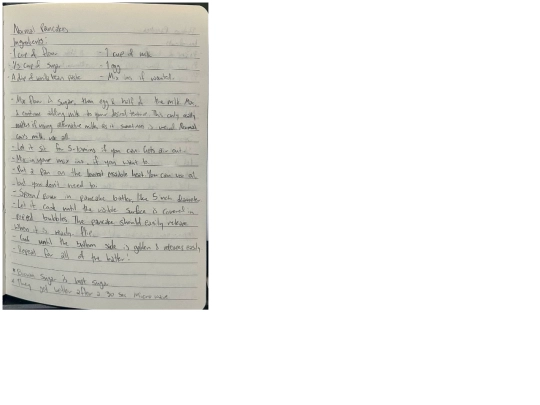 Normal Pancakes
Ingredients:
1 cup of flour - 1 cup of milk
1/3 cup of sugar - 1 egg
A dope of vanilla bean paste - Mix ins if wanted
- Mix flour & sugar, then egg & half of the milk. Mix
& continue adding milk to your desired texture. This only really
matters if using alternative milk as it sometimes is weird. Normal
cow's milk use all
- Let it sit for 5-10mins if you can. Gets air out
- Mix in your mix ins, if you want to
- Put a pan on the lowest possible heat. You can use oil
but you don't need to.
- Spoon/pour in pancake batter, like 5 inch diameter
- Let it cook until the visible surface is covered in
popped bubbles. The pancake should easily release
when it is ready. Flip
- Cook until the bottom side is golden & releases easily
- Repeat for all of the batter!
* Brown sugar is best sugar
* They get better after a 30 sec microwave